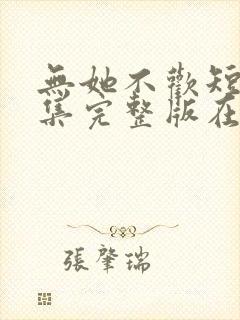 無她不歡短
集完整版在
張肇瑞